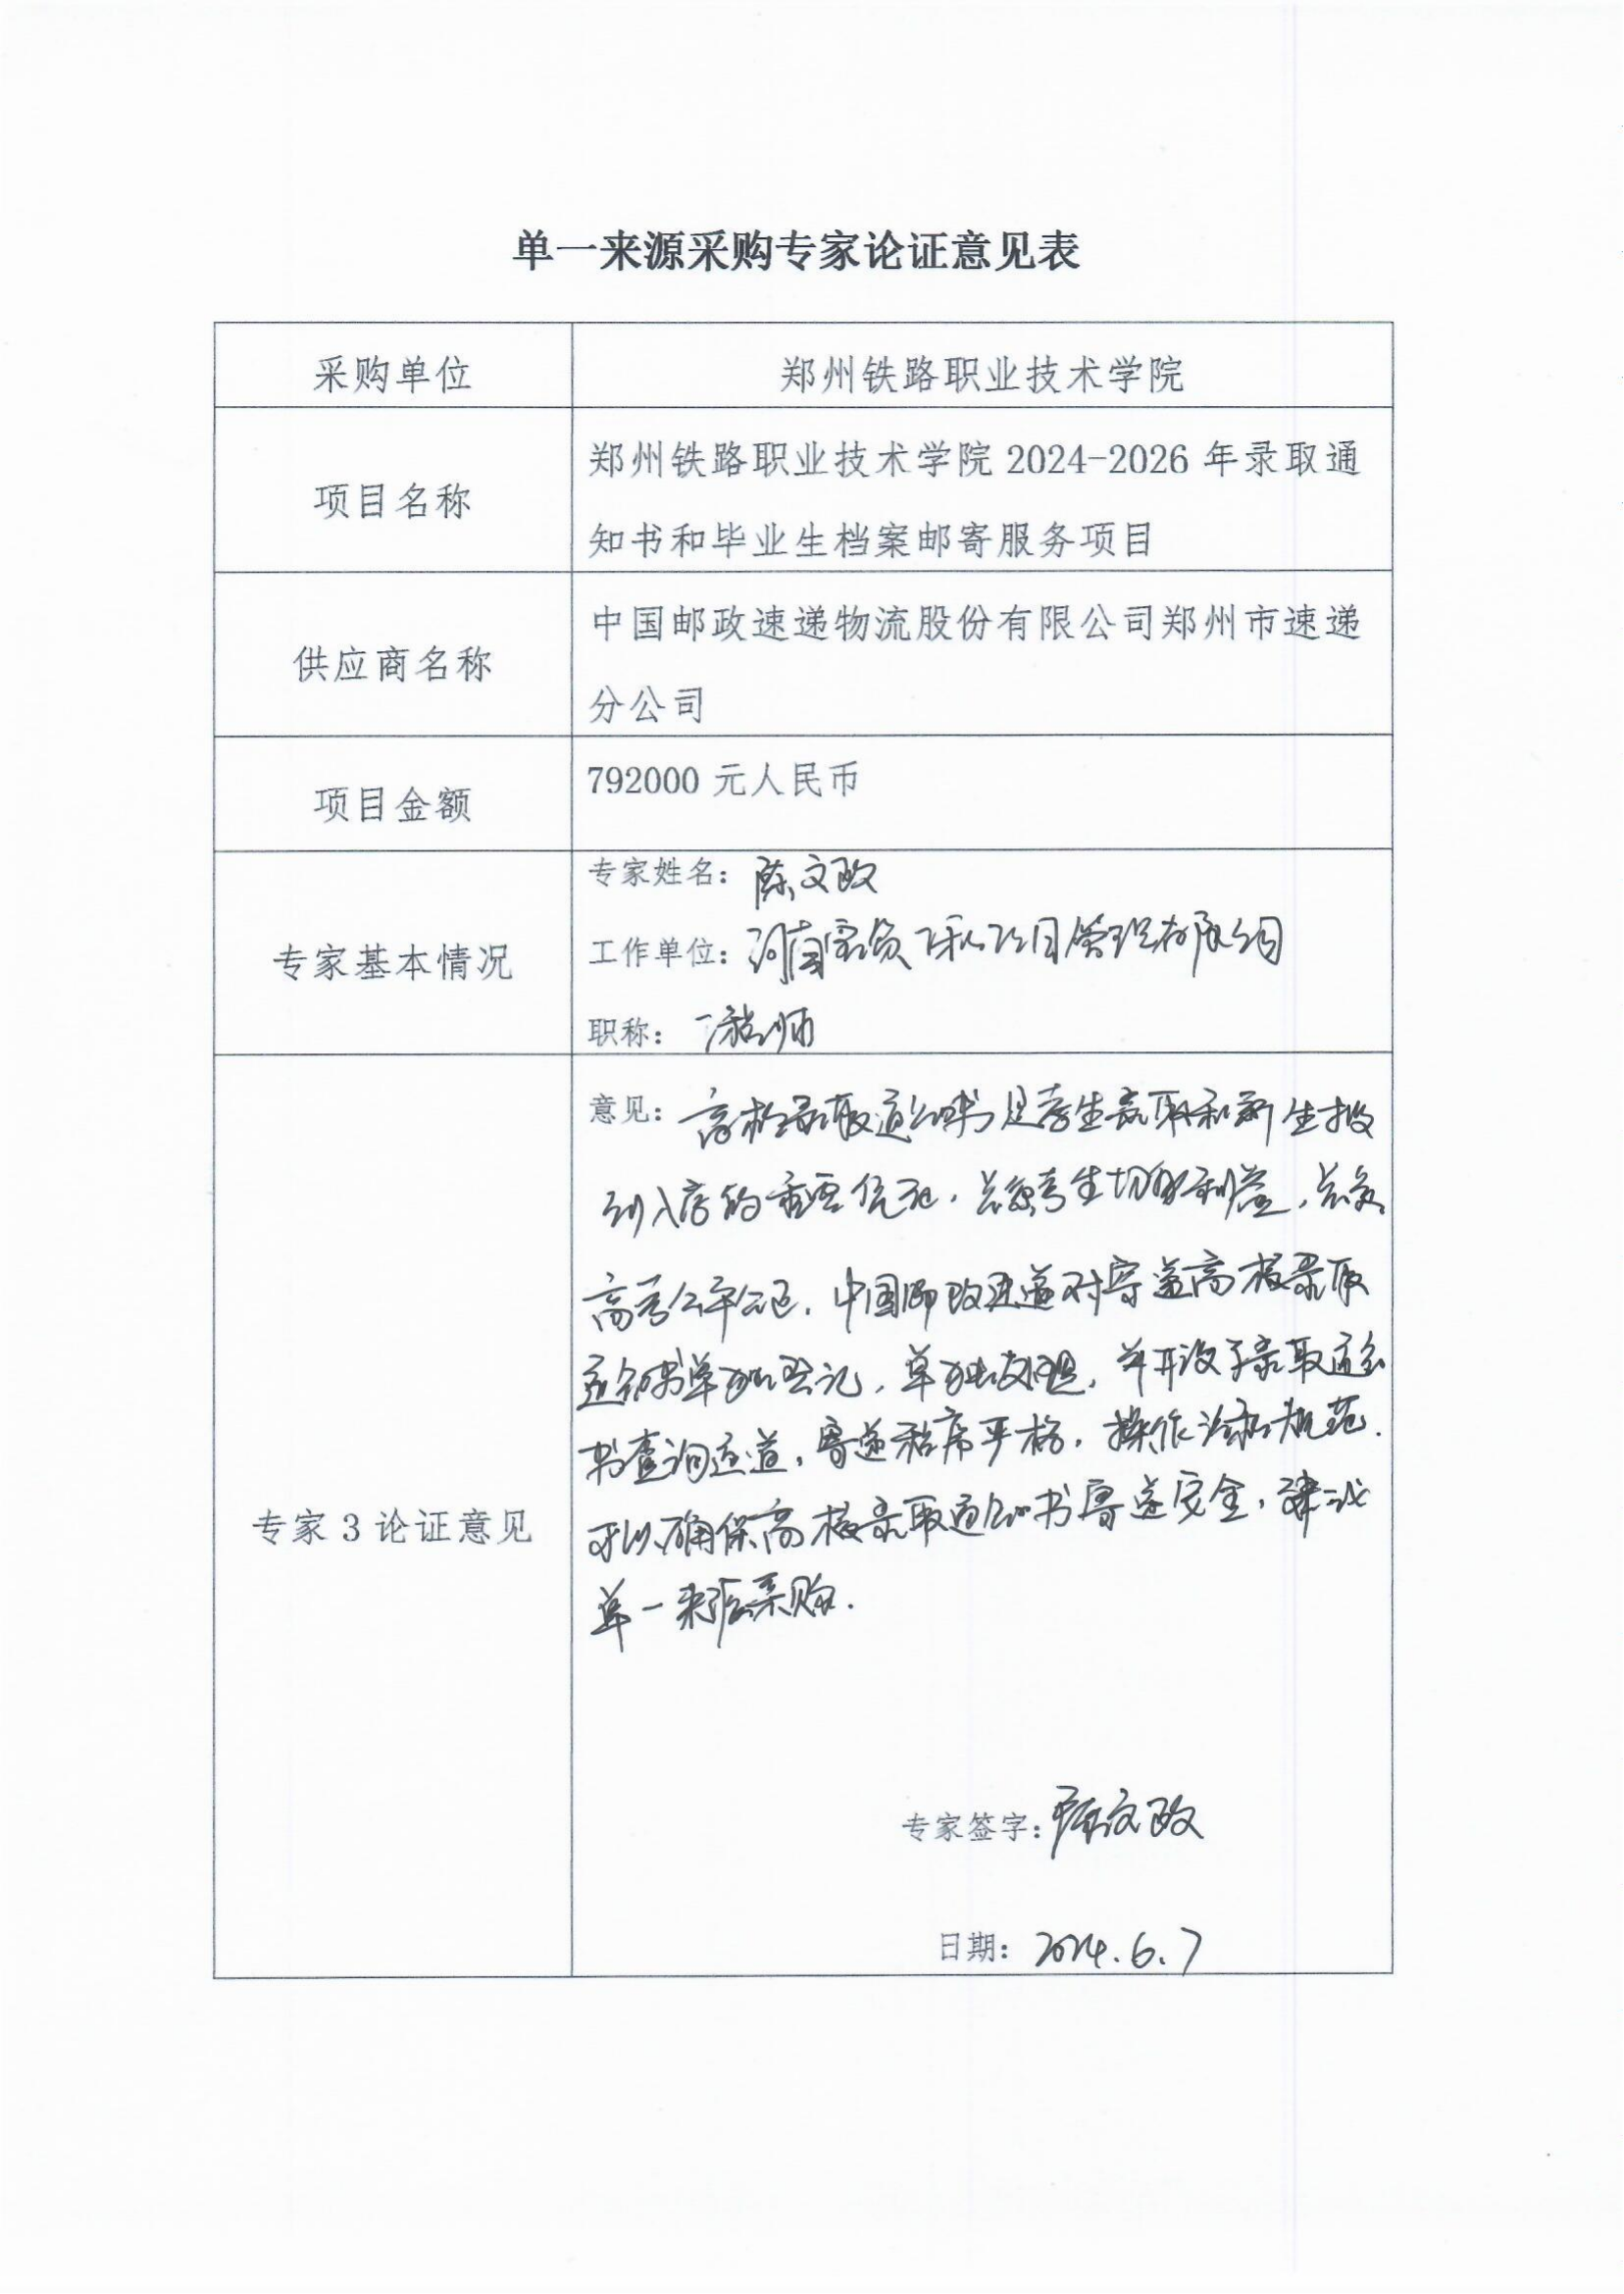 单一来源采购专家论证意见表
采购单位
郑州铁路职业技术学院
项目名称
郑州铁路职业技术学院 2024-2026 年录取通
知书和毕业生档案邮寄服务项目
供应商名称
中国邮政速递物流股份有限公司郑州市速递
分公司
项目金额
792000 元人民币
专家基本情况
专家姓名：陈文政
工作单位：河南 项目管理有限公司
职称：工程师
专家 3 论证意见
意见：高校录取通知书是考生录取和新生报
到入学的重要凭证，关系考生切身利益，关系
高考公平公正。中国邮政速递对寄递高校录取
通知书单独登记，单独处理，并开设了录取通知
书查询通道，寄递程序严格，操作流程规范.
可以确保高校录取通知书寄递安全，建议
单一来源采购.
专家签字：陈文政
日期：2024.6.7